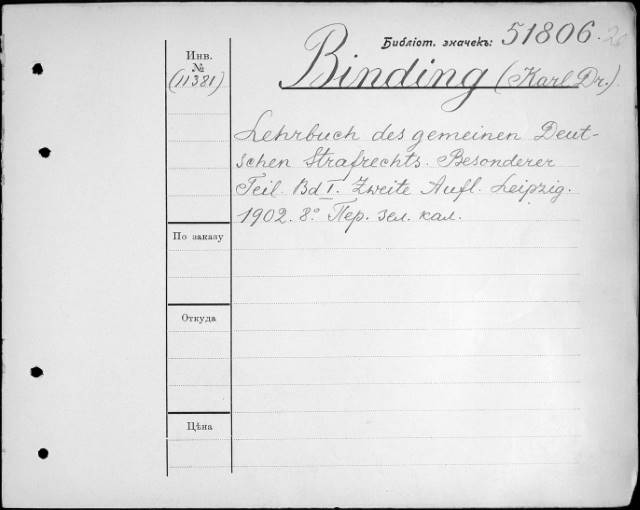 Библіот. значекъ: 51806.
Инв.
№
(11381)
Binding (Karl Dr.)
Lehrbuch des gemeinen Deut-
schen Strafrechts. Besonderer
Teil. Bd I. Zweite Aufl. Leipzig.
1902. 8° Пер. зел. кал.
По заказу
Откуда
Цѣна